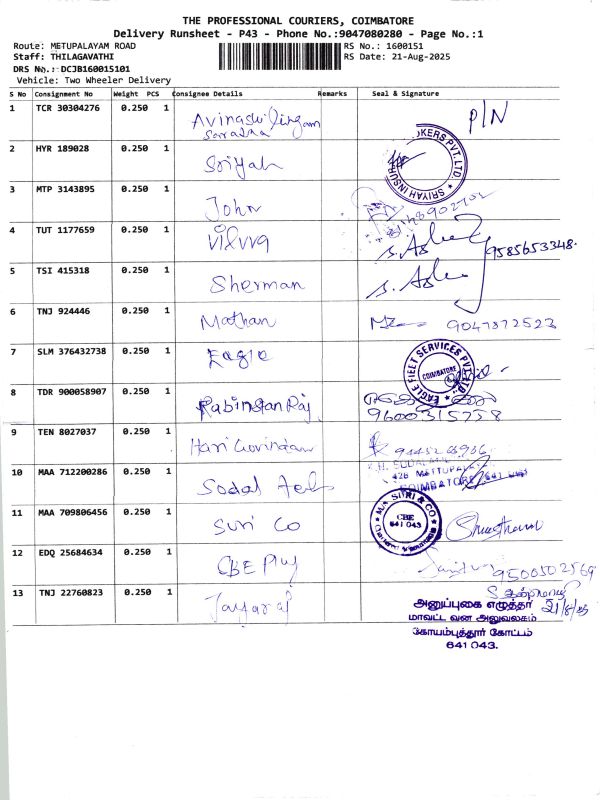 THE PROFESSIONAL COURIERS, COIMBATORE
Delivery Runsheet - P43 - Phone No.:9047080280 - Page No.:1
Route: METUPALAYAM ROAD RS No.: 1600151
Staff: THILAGAVATHI RS Date: 21-Aug-2025
DRS No.: DCJB160015101
Vehicle: Two Wheeler Delivery
S No Consignment No Weight PCS Consignee Details Remarks Seal & Signature
1 TCR 30304276 0.250 1 Avinashilingam P/N
2 HYR 189028 0.250 1 Sriyah SRIYAH INSURANCE BROKERS PVT. LTD.
3 MTP 3143895 0.250 1 John
4 TUT 1177659 0.250 1 9585653348.
5 TSI 415318 0.250 1 Sherman
6 TNJ 924446 0.250 1 Mathan 9047872523
7 SLM 376432738 0.250 1 Eagle EAGLE FLEET SERVICES PVT. LTD. COIMBATORE
8 TDR 900058907 0.250 1 9600315758
9 TEN 8027037 0.250 1 Hari Govindan
10 MAA 712200286 0.250 1 COIMBATORE 641
11 MAA 709806456 0.250 1 Suri Co SURI & CO CBE 641 043
12 EDQ 25684634 0.250 1 9500502569
13 TNJ 22760823 0.250 1 Jayaraj 21/8/25
அனுப்புகை எழுத்தர்
மாவட்ட வன அலுவலகம்
கோயம்புத்தூர் கோட்டம்
641 043.